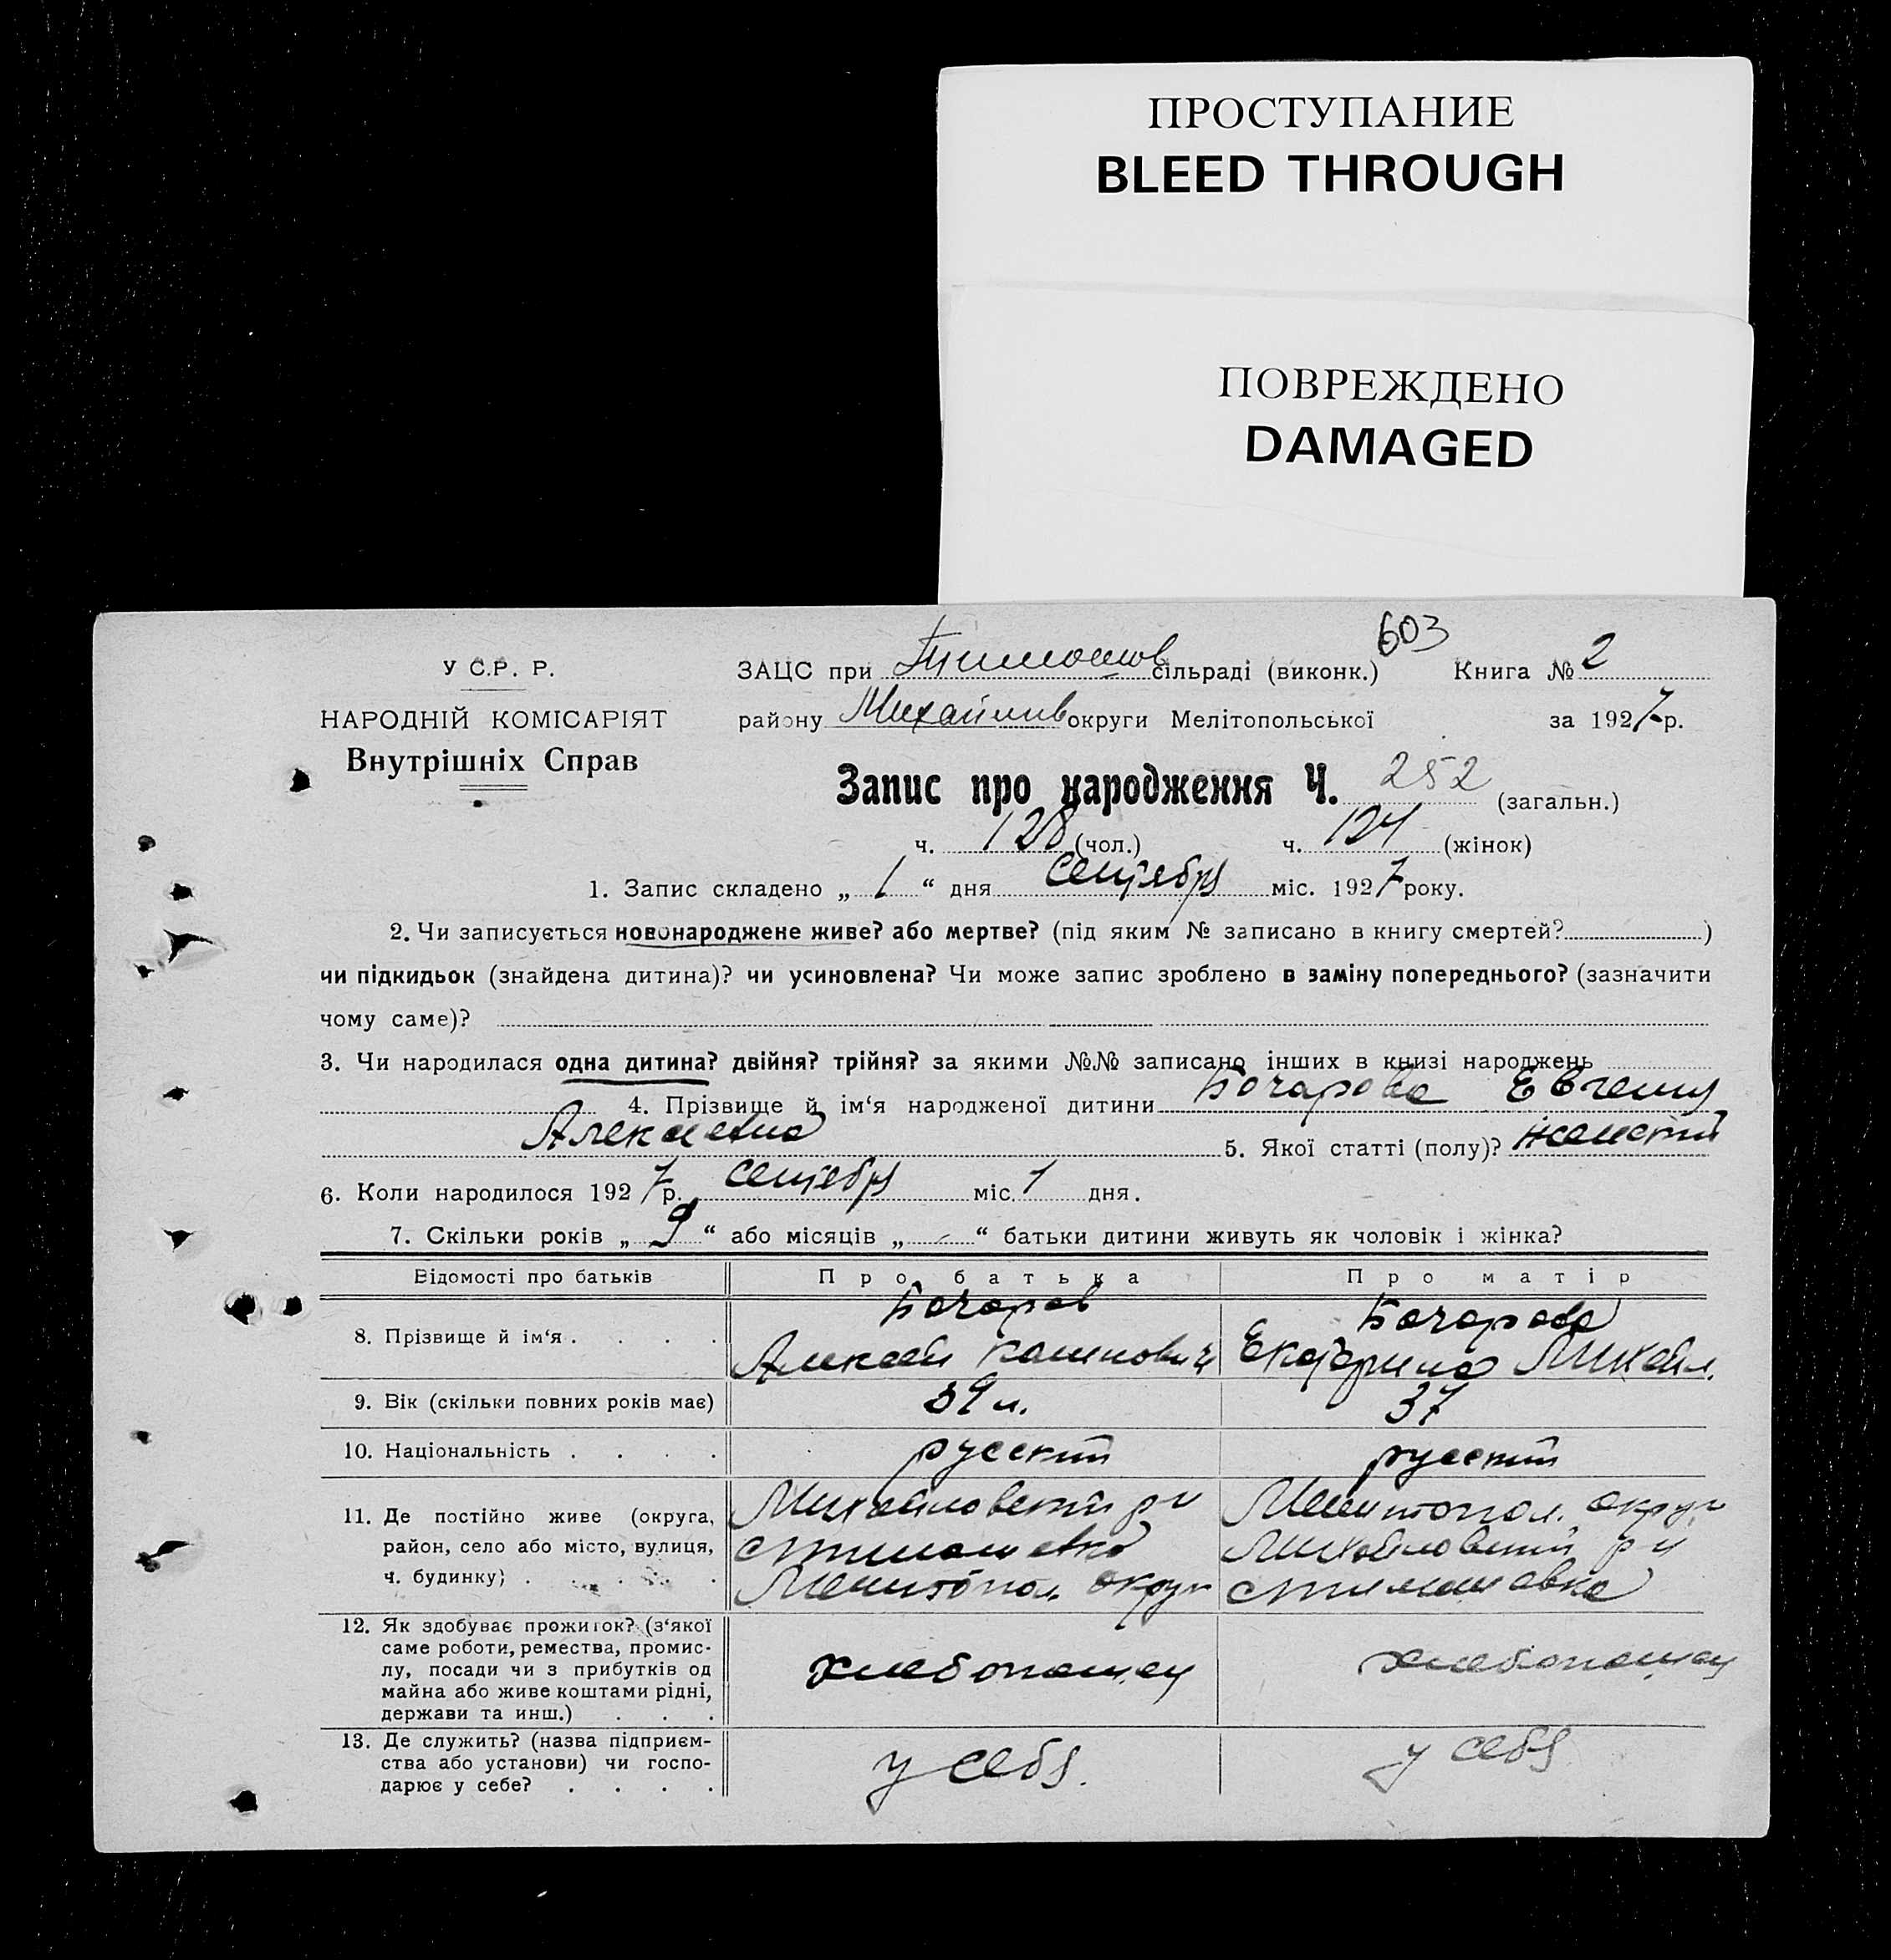 ПРОСТУПАНИЕ
BLEED THROUGH
ПОВРЕЖДЕНО
DAMAGED
603
У С.Р. Р.
ЗАЦС при Тимошов сільраді (виконк.) Книга № 2
НАРОДНІЙ КОМІСАРІЯТ
району Михайлив округи Мелітопольської за 1927 р.
Внутрішніх Справ
Запис про народження Ч. 252 (загальн.)
ч. 128 (чол.) ч. 124 (жінок)
1. Запис складено „ 1 “ дня Сентебря міс. 1927 року.
2. Чи записується новонароджене живе? або мертве? (під яким № записано в книгу смертей? )
чи підкидьок (знайдена дитина)? чи усиновлена? Чи може запис зроблено в заміну попереднього? (зазначити
чому саме)?
3. Чи народилася одна дитина? двійня? трійня? за якими №№ записано інших в книзі народжень
4. Прізвище й ім‘я народженої дитини Бочарова
5. Якої статті (полу)? женский
6. Коли народилося 1927 р. Сентебря міс. 1 дня.
7. Скільки років „ 9 “ або місяців „ - “ батьки дитини живуть як чоловік і жінка?
Відомості про батьків Про батька Про матір
8. Прізвище й ім‘я . . . . Бочаров Бочарова
Алексей Екатерина Михайл.
9. Вік (скільки повних років має) 39 л. 37
10. Національність . . . . русский русский
11. Де постійно живе (округа, район, село або місто, вулиця, ч. будинку) . . . .
Михайловский р н Мелитопол. округ
с Тимошовка Михайловский р н
Мелитопол. округ с Тимошовка
12. Як здобуває прожиток? (з‘якої
саме роботи, ремества, промис-
лу, посади чи з прибутків од
майна або живе коштами рідні,
держави та инш.) . . .
хлебопашец хлебопашец
13. Де служить? (назва підприєм-
ства або установи) чи госпо-
дарює у себе? . . . .
у себя. у себя